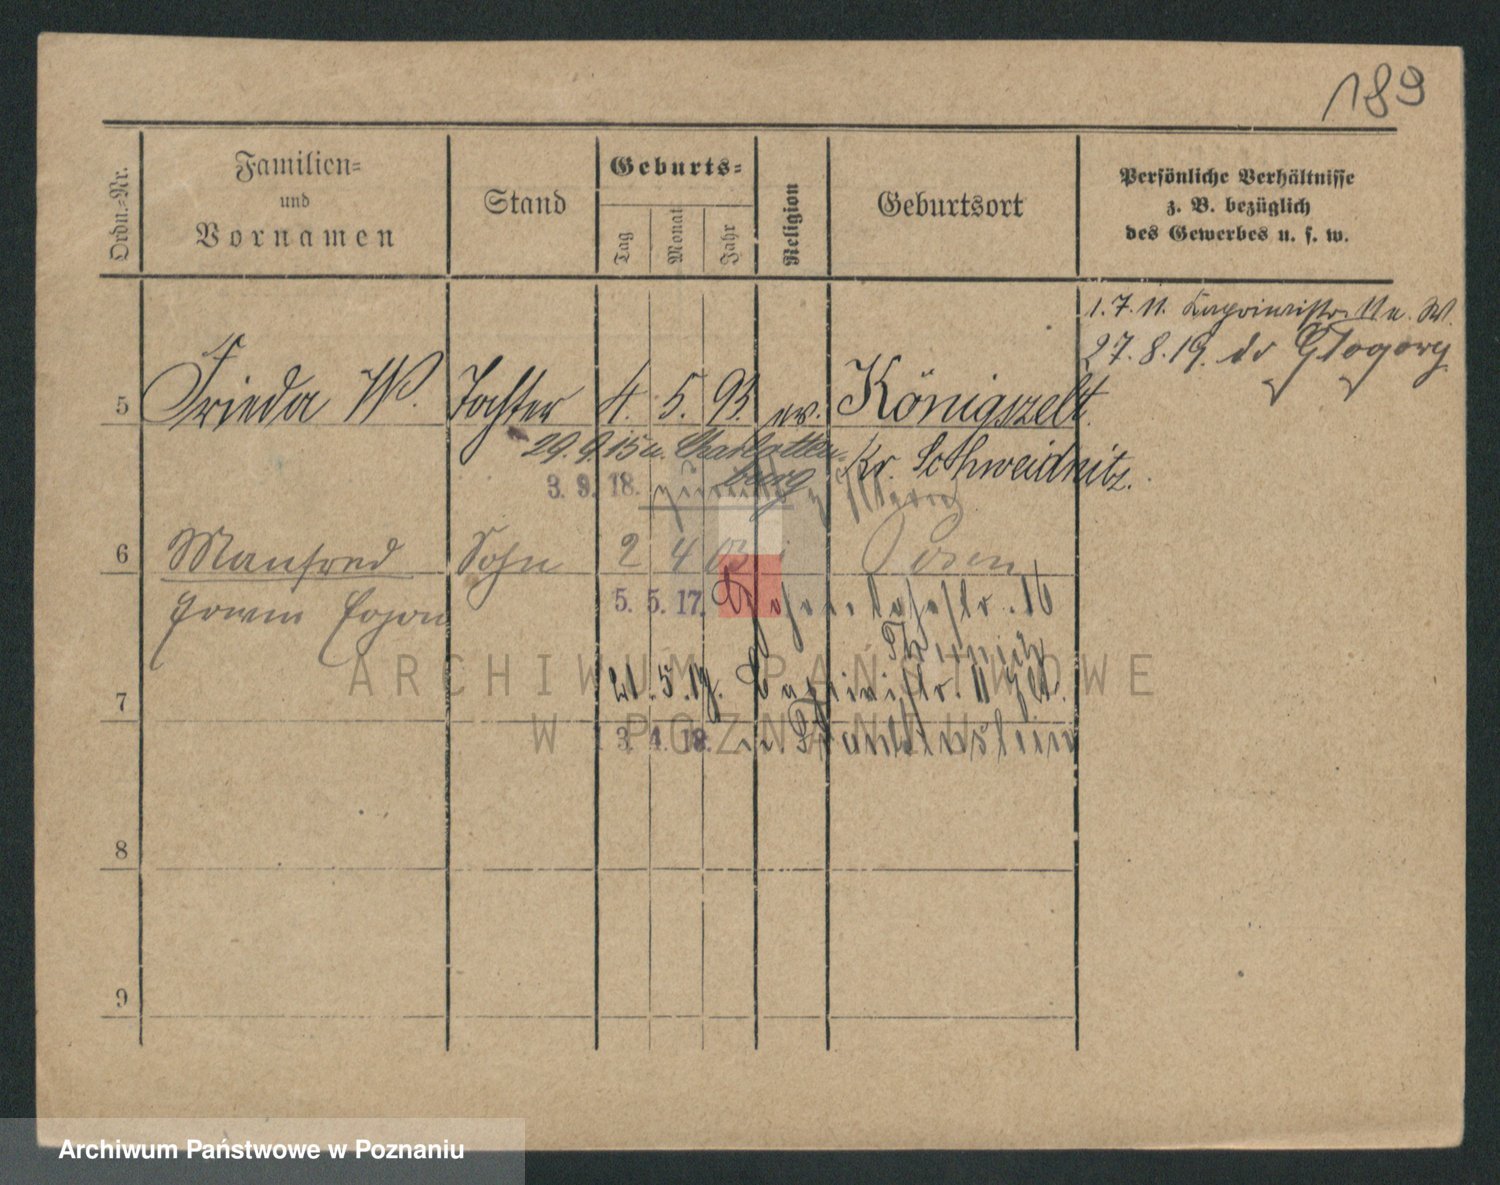 189
Ordn.-Nr.
Familien-
und
Vornamen
Stand
Geburts-
Tag
Monat
Jahr
Religion
Geburtsort
Persönliche Verhältnisse
z. B. bezüglich
des Gewerbes u. s. w.
1.7.11.
27.8.19.
5 Frieda W. Tochter 4. 5. 93. ev. Königszelt
Kr. Schweidnitz.
29.9.15 n. Charlotten-
burg
3. 9. 18. zurück
6 Manfred Sohn 2 4 03 Posen
Erwin
5. 5. 17. Hohenlohestr. 16
21.5.19.
7
3. 4. 18.
8
9
ARCHIWUM PAŃSTWOWE
W POZNANIU
Archiwum Państwowe w Poznaniu